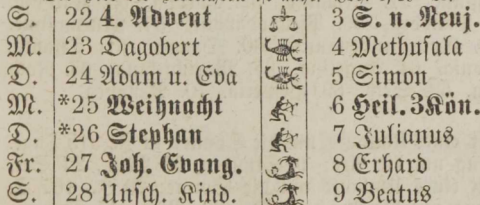 S. 22 4. Advent 3 S. n. Neuj.
M. 23 Dagobert 4 Methusala
D. 24 Adam u. Eva 5 Simon
M. *25 Weihnacht 6 Heil. 3 Kön.
D. *26 Stephan 7 Julianus
Fr. 27 Joh. Evang. 8 Erhard
S. 28 Unsch. Kind. 9 Beatus